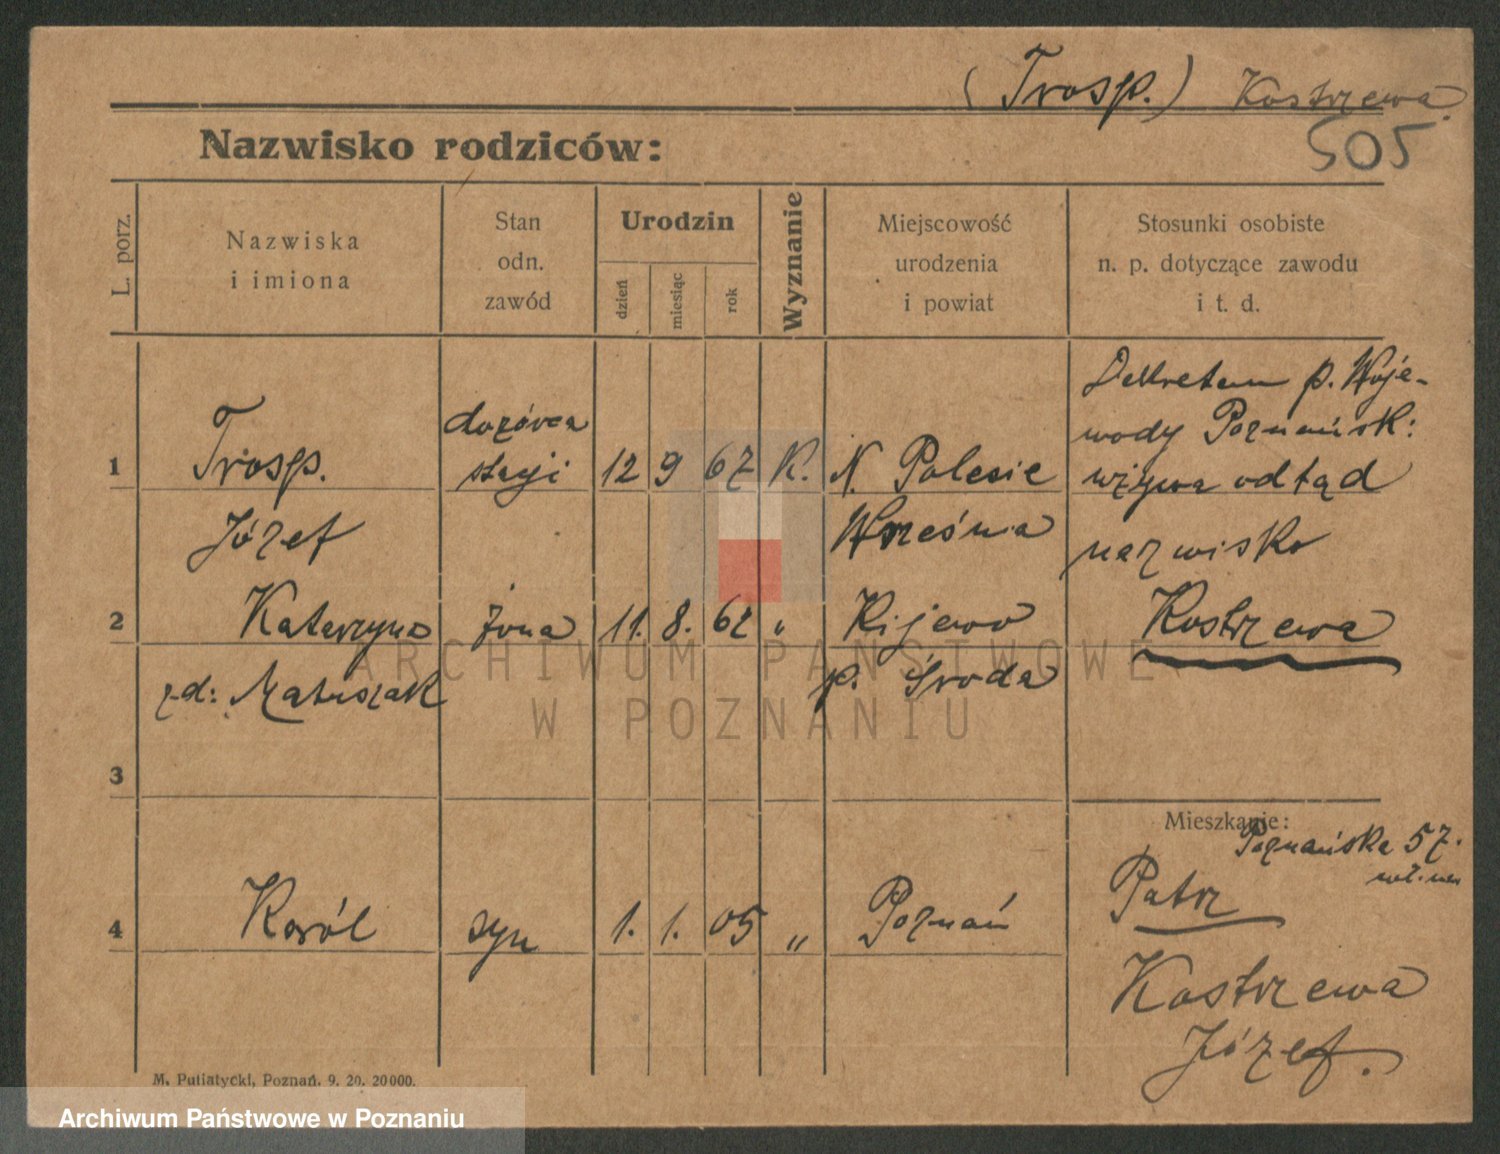 (Trosp.) Kostrzewa
505
Nazwisko rodziców:
L. porz.
Nazwiska
i imiona
Stan
odn.
zawód
Urodzin
dzień
miesiąc
rok
Wyznanie
Miejscowość
urodzenia
i powiat
Stosunki osobiste
n. p. dotyczące zawodu
i t. d.
1
Trosp.
Józef
dozórca
stacji
12
9
67
K.
N. Polesie
Września
Dekretem p. Woje-
wody Poznańsk:
używa odtąd
nazwisko
Kostrzewa
2
Katarzyna
zd: Matuszak
żona
11.
8.
62
"
Kijewo
p. Środa
3
4
Karól
syn
1.
1.
05
"
Poznań
Mieszkanie:
Poznańska 57.
Patrz
Kostrzewa
Józef.
M. Putiatycki, Poznań. 9. 20. 20000.
ARCHIWUM PAŃSTWOWE
W POZNANIU
Archiwum Państwowe w Poznaniu